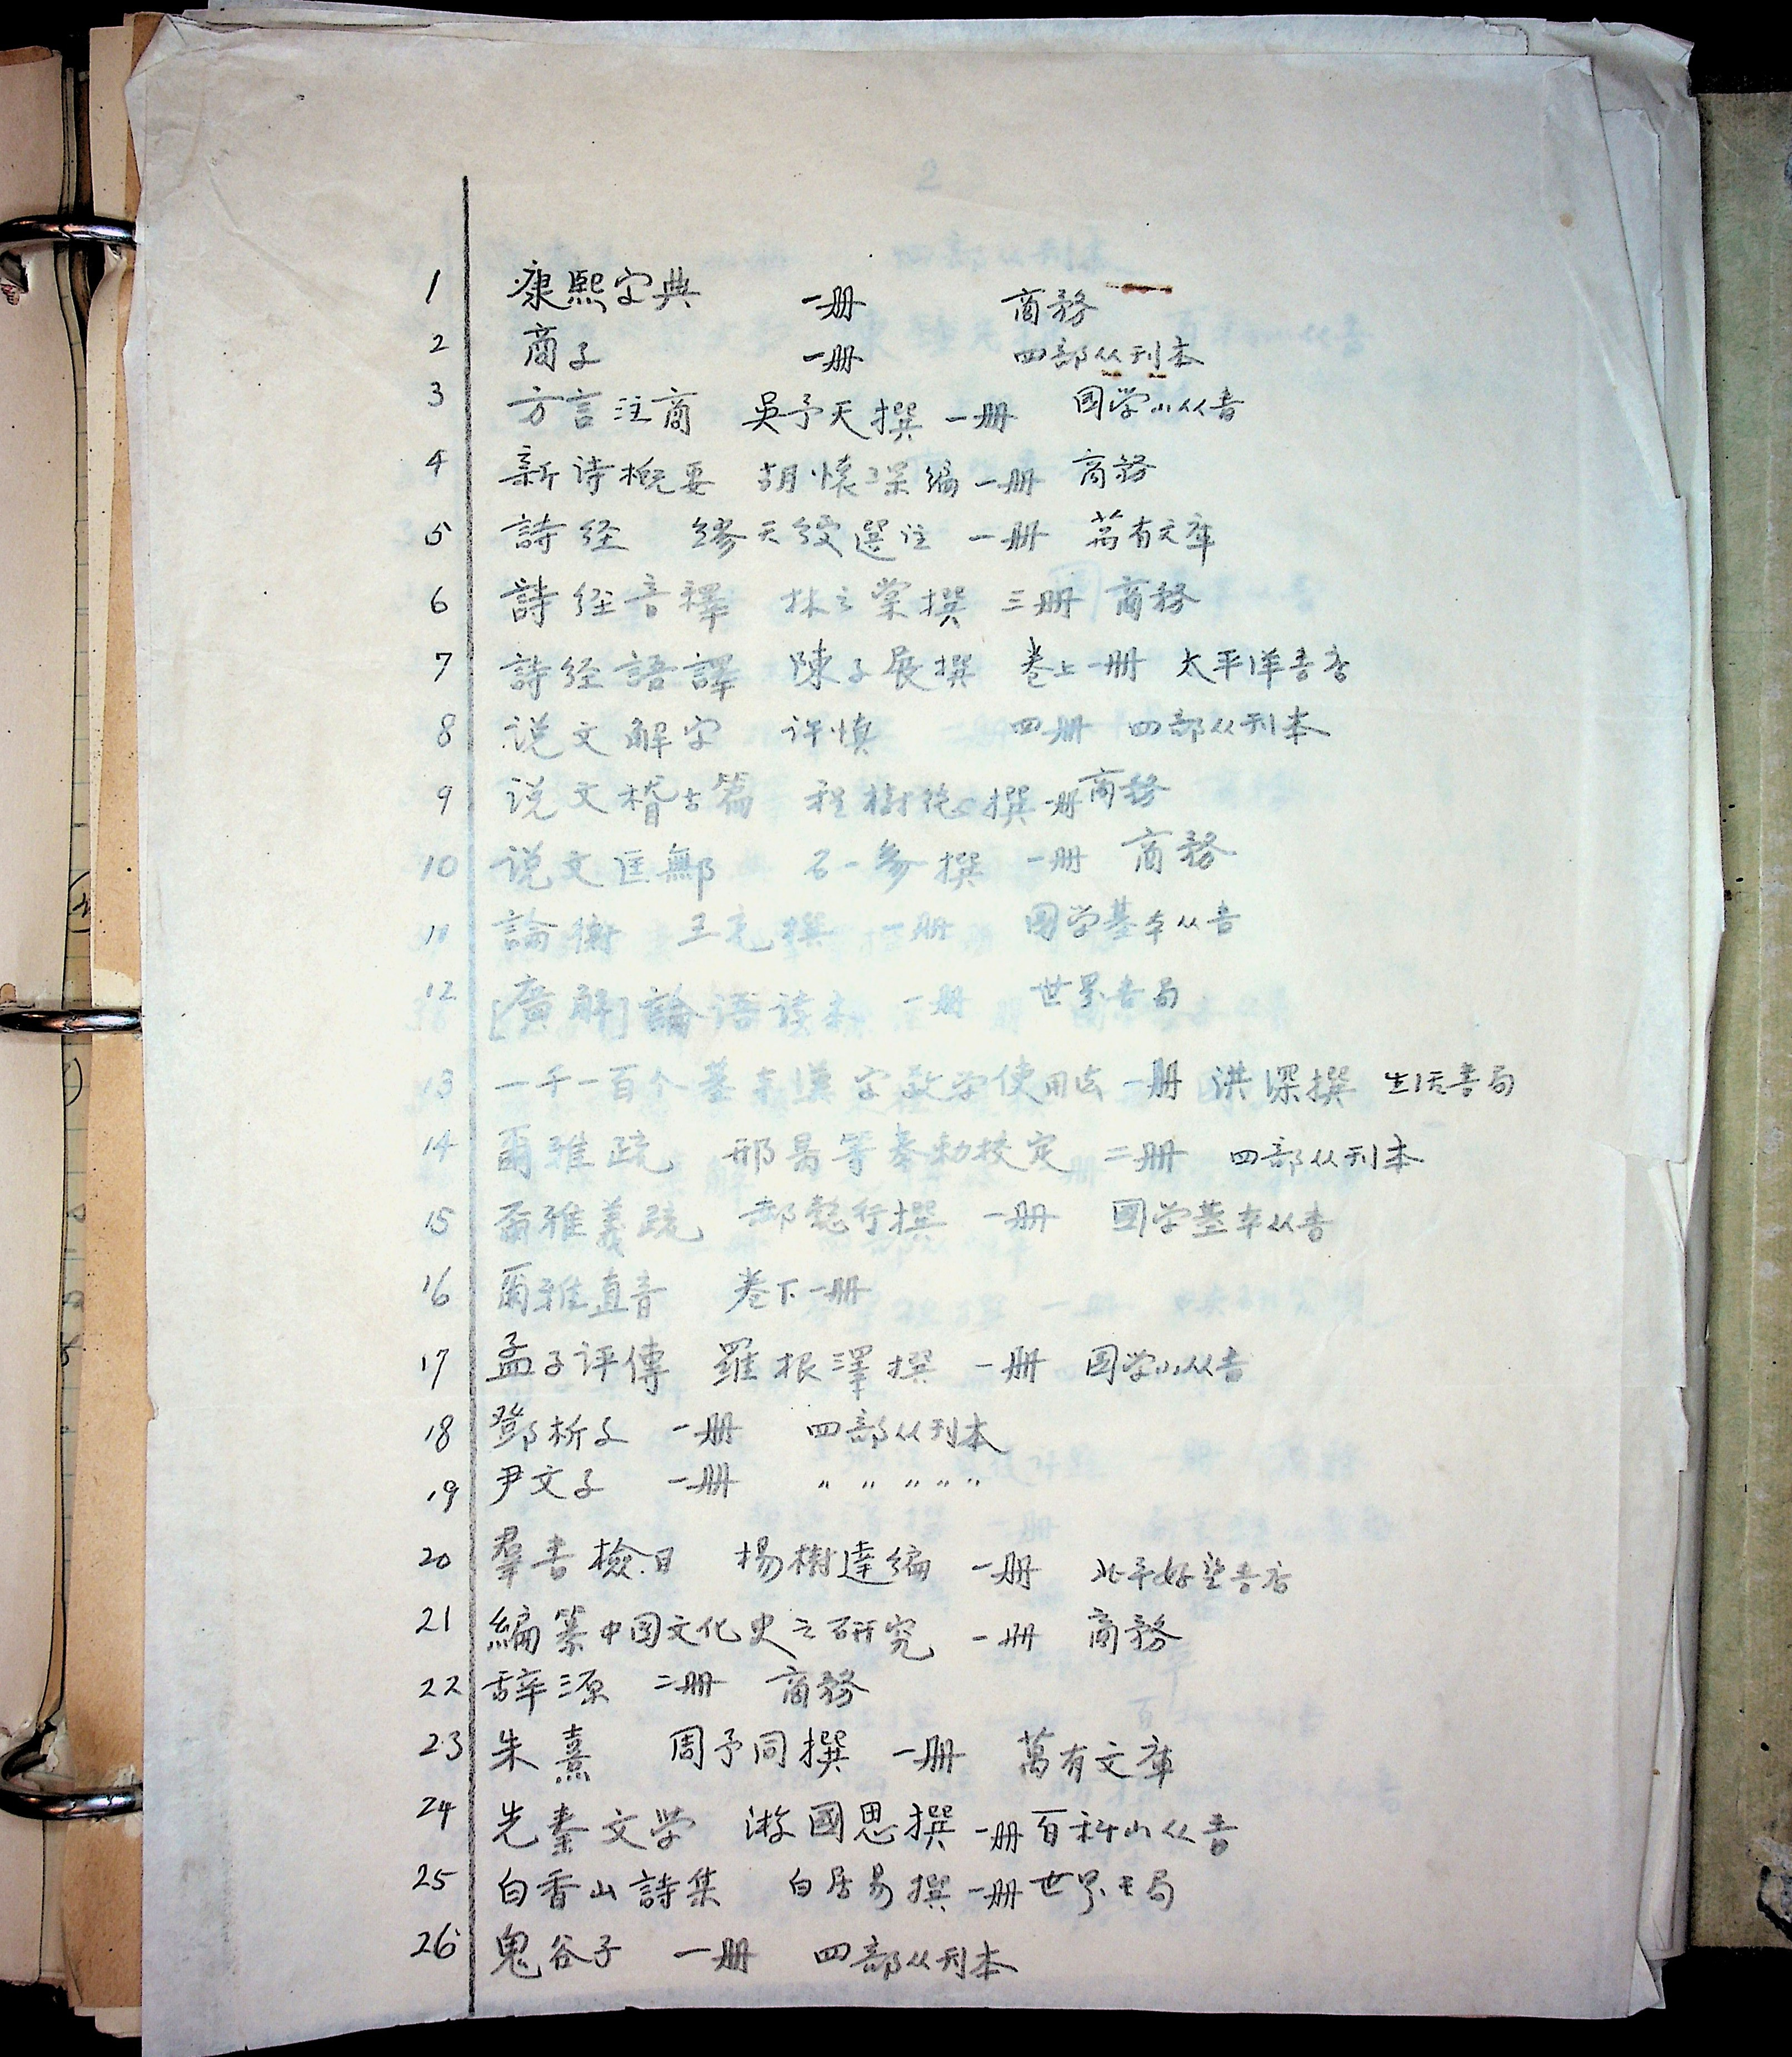 1 康熙字典 一册 商務
2 商子 一册 四部从刊本
3 方言注商 吳予天撰 一册 国学小从書
4 新诗概要 胡懷琛编 一册 商務
5 詩经 繆天綬選注 一册 萬有文庫
6 詩经音釋 林之棠撰 三册 商務
7 詩经語譯 陳子展撰 卷上一册 太平洋書店
8 说文解字 许慎 四册 四部从刊本
9 说文稽古篇 程樹德撰 一册 商務
10 说文匡鄦 石一參撰 一册 商務
11 論衡 王充撰 一册 国学基本从書
12 [廣解]論语读本 一册 世界書局
13 一千一百个基本漢字教学使用法 一册 洪深撰 生活書局
14 爾雅疏 邢昺等奉勅校定 二册 四部从刊本
15 爾雅義疏 郝懿行撰 一册 國学基本从書
16 爾雅直音 卷下一册
17 孟子评傳 羅根澤撰 一册 国学小从書
18 鄧析子 一册 四部从刊本
19 尹文子 一册 〃 〃 〃 〃 〃
20 羣書檢目 楊樹達编 一册 北平好望書店
21 編篆中国文化史之研究 一册 商務
22 辞源 二册 商務
23 朱熹 周予同撰 一册 萬有文庫
24 先秦文学 游國恩撰 一册 百科小从書
25 白香山詩集 白居易撰 一册 世界局
26 鬼谷子 一册 四部从刊本